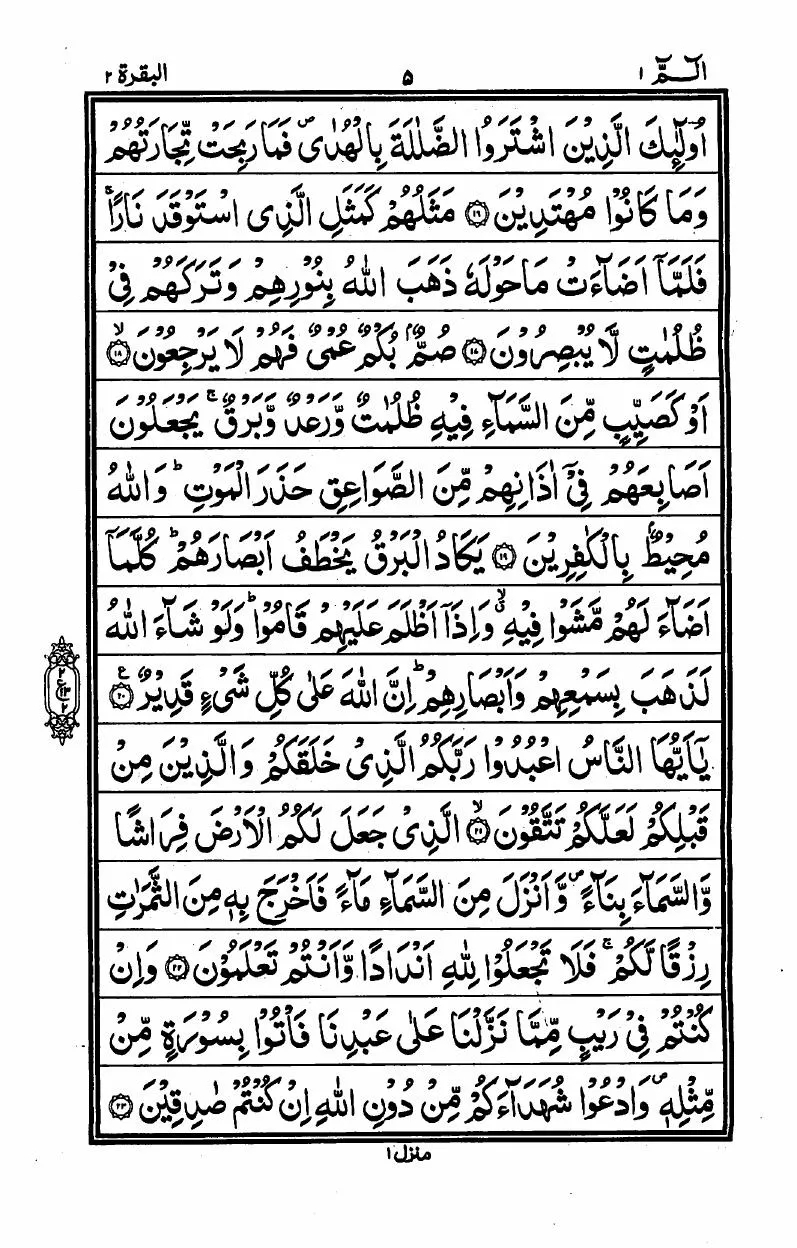 الٓـمّٓ ١ ۵ البقرة ٢
اُولٰٓئِكَ الَّذِيْنَ اشْتَرَوُا الضَّلٰلَةَ بِالْهُدٰى ۪ فَمَا رَبِحَتْ تِّجَارَتُهُمْ
وَمَا كَانُوْا مُهْتَدِيْنَ ﴿۱۶﴾ مَثَلُهُمْ كَمَثَلِ الَّذِى اسْتَوْقَدَ نَارًا ۚ
فَلَمَّآ اَضَآءَتْ مَا حَوْلَهٗ ذَهَبَ اللّٰهُ بِنُوْرِهِمْ وَتَرَكَهُمْ فِىْ
ظُلُمٰتٍ لَّا يُبْصِرُوْنَ ﴿۱۷﴾ صُمٌّۢ بُكْمٌ عُمْىٌ فَهُمْ لَا يَرْجِعُوْنَ ۙ ﴿۱۸﴾
اَوْ كَصَيِّبٍ مِّنَ السَّمَآءِ فِيْهِ ظُلُمٰتٌ وَّرَعْدٌ وَّبَرْقٌ ۚ يَجْعَلُوْنَ
اَصَابِعَهُمْ فِىْٓ اٰذَانِهِمْ مِّنَ الصَّوَاعِقِ حَذَرَ الْمَوْتِ ؕ وَاللّٰهُ
مُحِيْطٌۢ بِالْكٰفِرِيْنَ ﴿۱۹﴾ يَكَادُ الْبَرْقُ يَخْطَفُ اَبْصَارَهُمْ ؕ كُلَّمَآ
اَضَآءَ لَهُمْ مَّشَوْا فِيْهِ ۙ وَاِذَآ اَظْلَمَ عَلَيْهِمْ قَامُوْا ؕ وَلَوْ شَآءَ اللّٰهُ
لَذَهَبَ بِسَمْعِهِمْ وَاَبْصَارِهِمْ ؕ اِنَّ اللّٰهَ عَلٰى كُلِّ شَىْءٍ قَدِيْرٌ ﴿۲۰﴾
يٰٓاَيُّهَا النَّاسُ اعْبُدُوْا رَبَّكُمُ الَّذِىْ خَلَقَكُمْ وَالَّذِيْنَ مِنْ
قَبْلِكُمْ لَعَلَّكُمْ تَتَّقُوْنَ ۙ ﴿۲۱﴾ الَّذِىْ جَعَلَ لَكُمُ الْاَرْضَ فِرَاشًا
وَّالسَّمَآءَ بِنَآءً ۪ وَّاَنْزَلَ مِنَ السَّمَآءِ مَآءً فَاَخْرَجَ بِهٖ مِنَ الثَّمَرٰتِ
رِزْقًا لَّكُمْ ۚ فَلَا تَجْعَلُوْا لِلّٰهِ اَنْدَادًا وَّاَنْتُمْ تَعْلَمُوْنَ ﴿۲۲﴾ وَاِنْ
كُنْتُمْ فِىْ رَيْبٍ مِّمَّا نَزَّلْنَا عَلٰى عَبْدِنَا فَاْتُوْا بِسُوْرَةٍ مِّنْ
مِّثْلِهٖ ۪ وَادْعُوْا شُهَدَآءَكُمْ مِّنْ دُوْنِ اللّٰهِ اِنْ كُنْتُمْ صٰدِقِيْنَ ﴿۲۳﴾
منزل ١